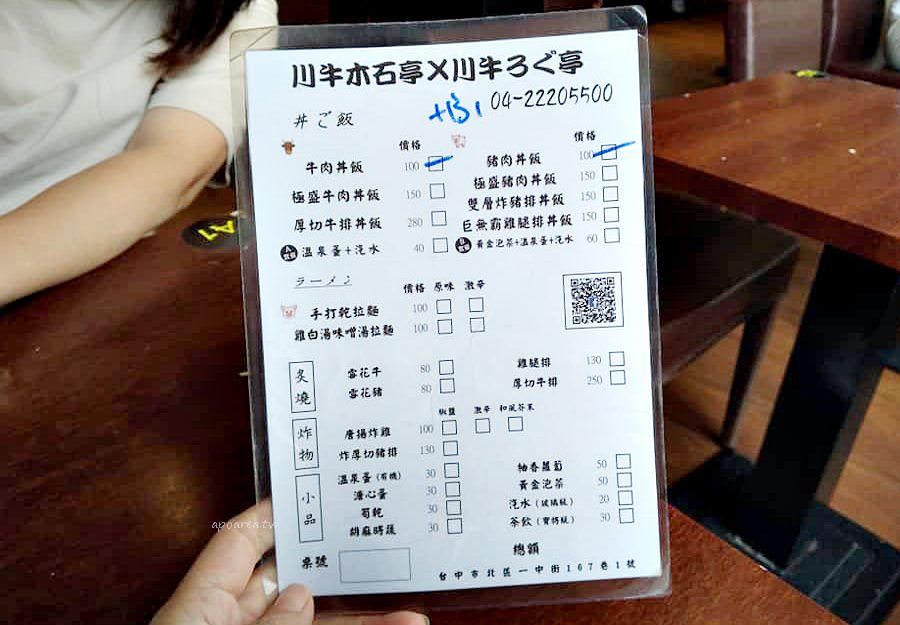 川牛木石亭X川牛ろぐ亭
04-22205500
丼ご飯
價格
牛肉丼飯 100
極盛牛肉丼飯 150
厚切牛排丼飯 280
溫泉蛋+汽水 40
價格
豬肉丼飯 100
極盛豬肉丼飯 150
雙層炸豬排丼飯 150
巨無霸雞腿排丼飯 150
黃金泡菜+溫泉蛋+汽水 60
ラーメン
價格 原味 激辛
手打乾拉麵 100
雞白湯味噌湯拉麵 100
炙燒
雪花牛 80
雪花豬 80
雞腿排 130
厚切牛排 250
炸物
椒鹽 激辛 和風芥末
唐揚炸雞 100
炸厚切豬排 130
小品
溫泉蛋(有機) 30
溏心蛋 30
筍乾 30
胡麻時蔬 30
柚香蘿蔔 50
黃金泡菜 50
汽水(玻璃瓶) 20
茶飲(寶特瓶) 30
桌號
總額
台中市北區一中街167巷1號
A1
apoarea.tw